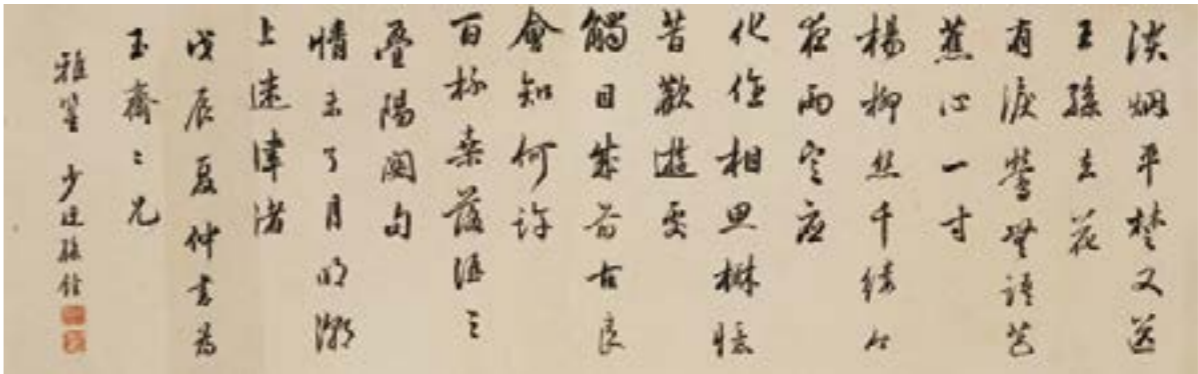 淡烟平楚又送
王孫去花
有淚鶯無語芭
蕉心一寸
楊柳絲千縷今
夜雨定應
化作相思樹憶
昔歡遊處
觸目成前古良
會知何許
百杯桑落酒三
疊陽關句
情未了月明潮
上迷津渚
戊辰夏仲書為
玉齋二兄
雅鑒 少迂孫銓